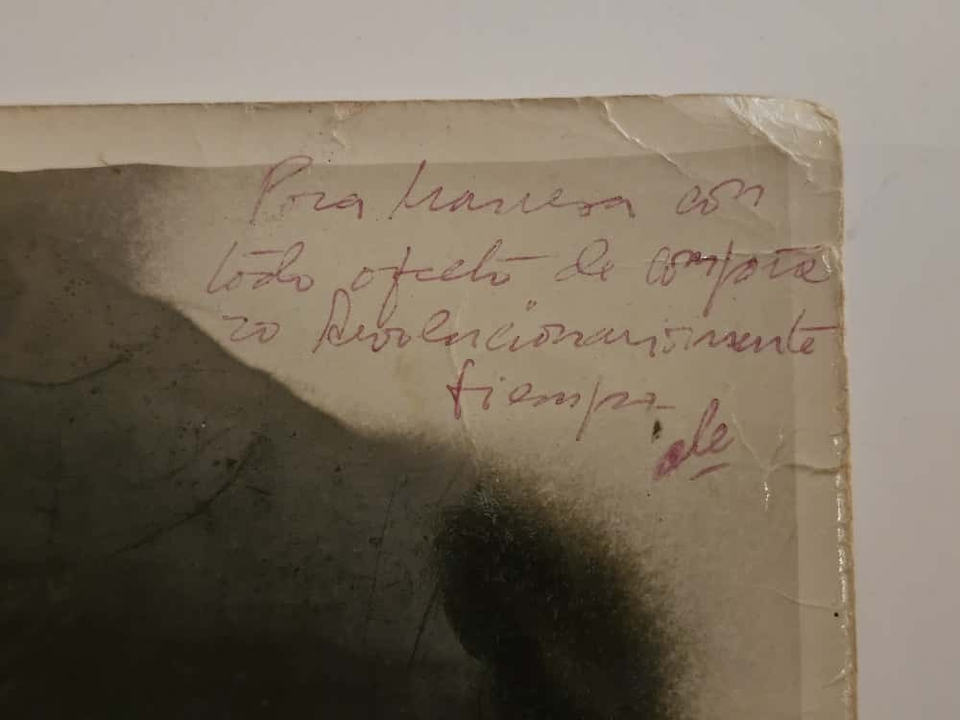 Para con
todo afecto de compañe
ro Revolucionariamente
siempre